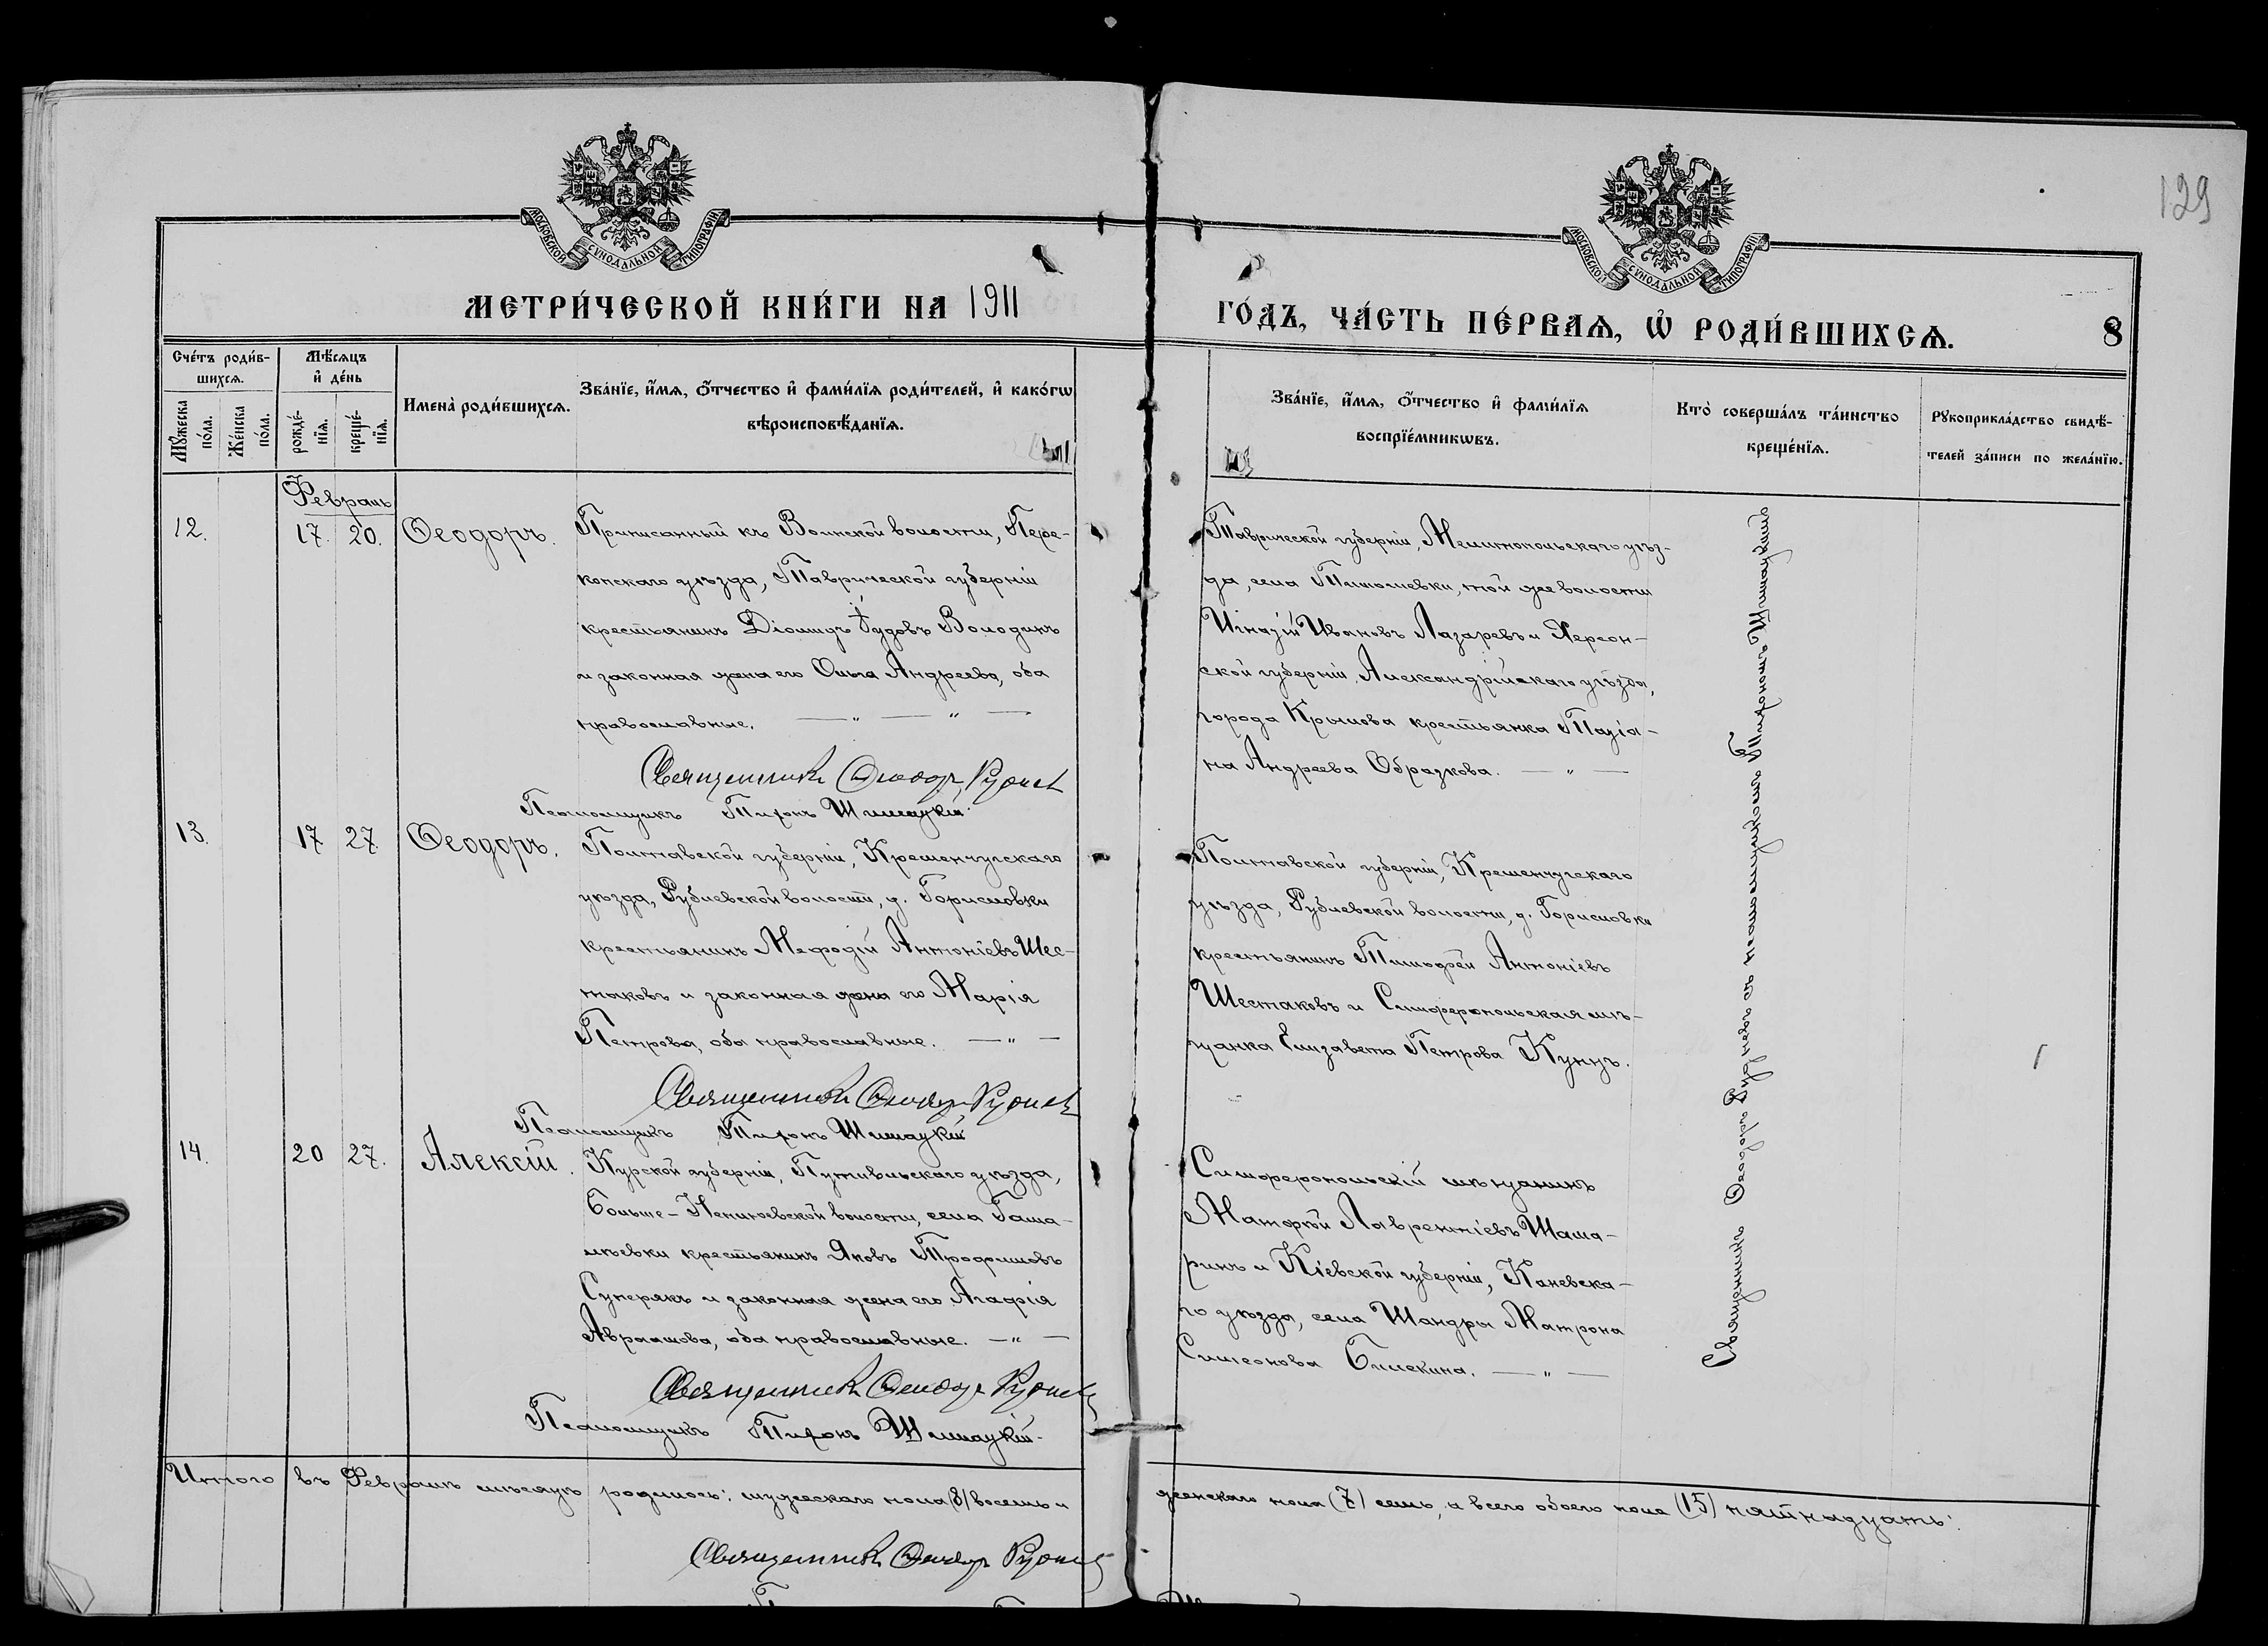 129
МОСКОВСКОЙ СѴНОДАЛЬНОЙ ТИПОГРАФІИ
МОСКОВСКОЙ СѴНОДАЛЬНОЙ ТИПОГРАФІИ
МЕТРИ́ЧЕСКОЙ КНИ́ГИ НА 1911
ГО́ДЪ, ЧА́СТЬ ПЕ́РВАѦ, Ѡ҆ РОДИ́ВШИХСѦ.
8
Сче́тъ роди́в-
шихсѧ.
Мꙋ́жеска
по́ла.
Же́нска
по́ла.
Мѣ́сѧцъ
и҆ де́нь
рожде́-
нїѧ.
креще́-
нїѧ.
Имена̀ роди́вшихсѧ.
Зва́нїе, и҆́мѧ, ѻ҆́тчество и҆ фами́лїѧ роди́телей, и҆ како́гѡ
вѣроисповѣ́данїѧ.
Зва́нїе, и҆́мѧ, ѻ҆́тчество и҆ фами́лїѧ
воспрїе́мникѡвъ.
Кто̀ соверша́лъ та́инство
креще́нїѧ.
Рꙋкоприкла́дство свидѣ́-
телей за́писи по жела́нїю.
Февраль
12.
17. 20.
Ѳеодоръ.
Приписанный къ Воинской волости, Пере-
копскаго уѣзда, Таврической губерніи
крестьянинъ Діомидъ Іудовъ Володинъ
и законная жена его Ольга Андреева, оба
православные. — „ — „ —
Священникъ Ѳеодоръ Руднев
Псаломщикъ Тихонъ Шимацкій.
Таврической губерніи, Мелитопольскаго уѣз-
да, села Тимошевки, той же волости
Игнатій Ивановъ Лазаревъ и Херсон-
ской губерніи, Александрійскаго уѣзда,
города Крылова крестьянка Татіа-
на Андреева Образкова. — „ —
13.
17 27.
Ѳеодоръ.
Полтавской губерніи, Кременчугскаго
уѣзда, Рублевской волости, д. Горисловки
крестьянинъ Мефодій Антоніевъ Шес-
таковъ и законная жена его Марія
Петрова, оба православные. — „ —
Священникъ Ѳеодоръ Руднев
Псаломщикъ Тихонъ Шимацкій
Полтавской губерніи, Кременчугскаго
уѣзда, Рублевской волости, д. Горисловки
крестьянинъ Тимофей Антоніевъ
Шестаковъ и Симферопольская мѣ-
щанка Елизавета Петрова Кунцъ.
14.
20 27.
Алексій.
Курской губерніи, Путивльскаго уѣзда,
Больше-Неплюевской волости, села
крестьянинъ Яковъ Трофимовъ
Суперякъ и законная жена его Агафія
Авраамова, оба православные. — „ —
Священникъ Ѳеодоръ Руднев
Псаломщикъ Тихонъ Шимацкій.
Симферопольскій мѣщанинъ
Матфей Лаврентіевъ Шата-
ринъ и Кіевской губерніи, Каневска-
го уѣзда, села Шандры Матрона
Симеонова — „ —
Священникъ Ѳеодоръ Рудневъ съ псаломщикомъ Тихономъ Шимацкимъ
Итого въ Февралѣ мѣсяцѣ родилось: мужескаго пола (8) восемь и
женскаго пола (7) семь, а всего обоего пола (15) пятнадцать.
Священникъ Ѳеодоръ Руднев